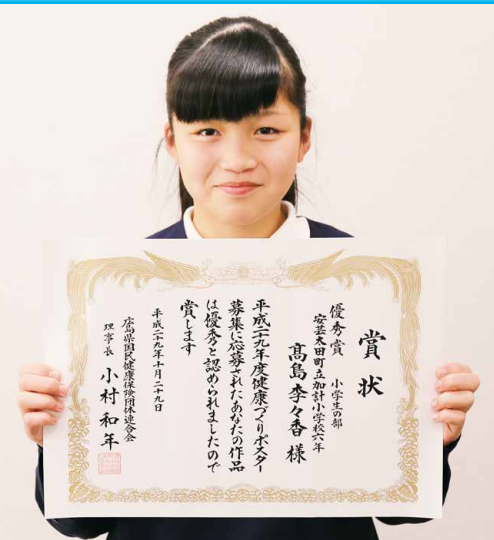 賞状
優秀賞 小学生の部
安芸太田町立加計小学校六年
髙島 李々香 様
平成二十九年度健康づくりポスター
募集に応募されたあなたの作品
は優秀と認められましたので
賞します
平成二十九年十月二十九日
広島県国民健康保険団体連合会
理事長 小村和年